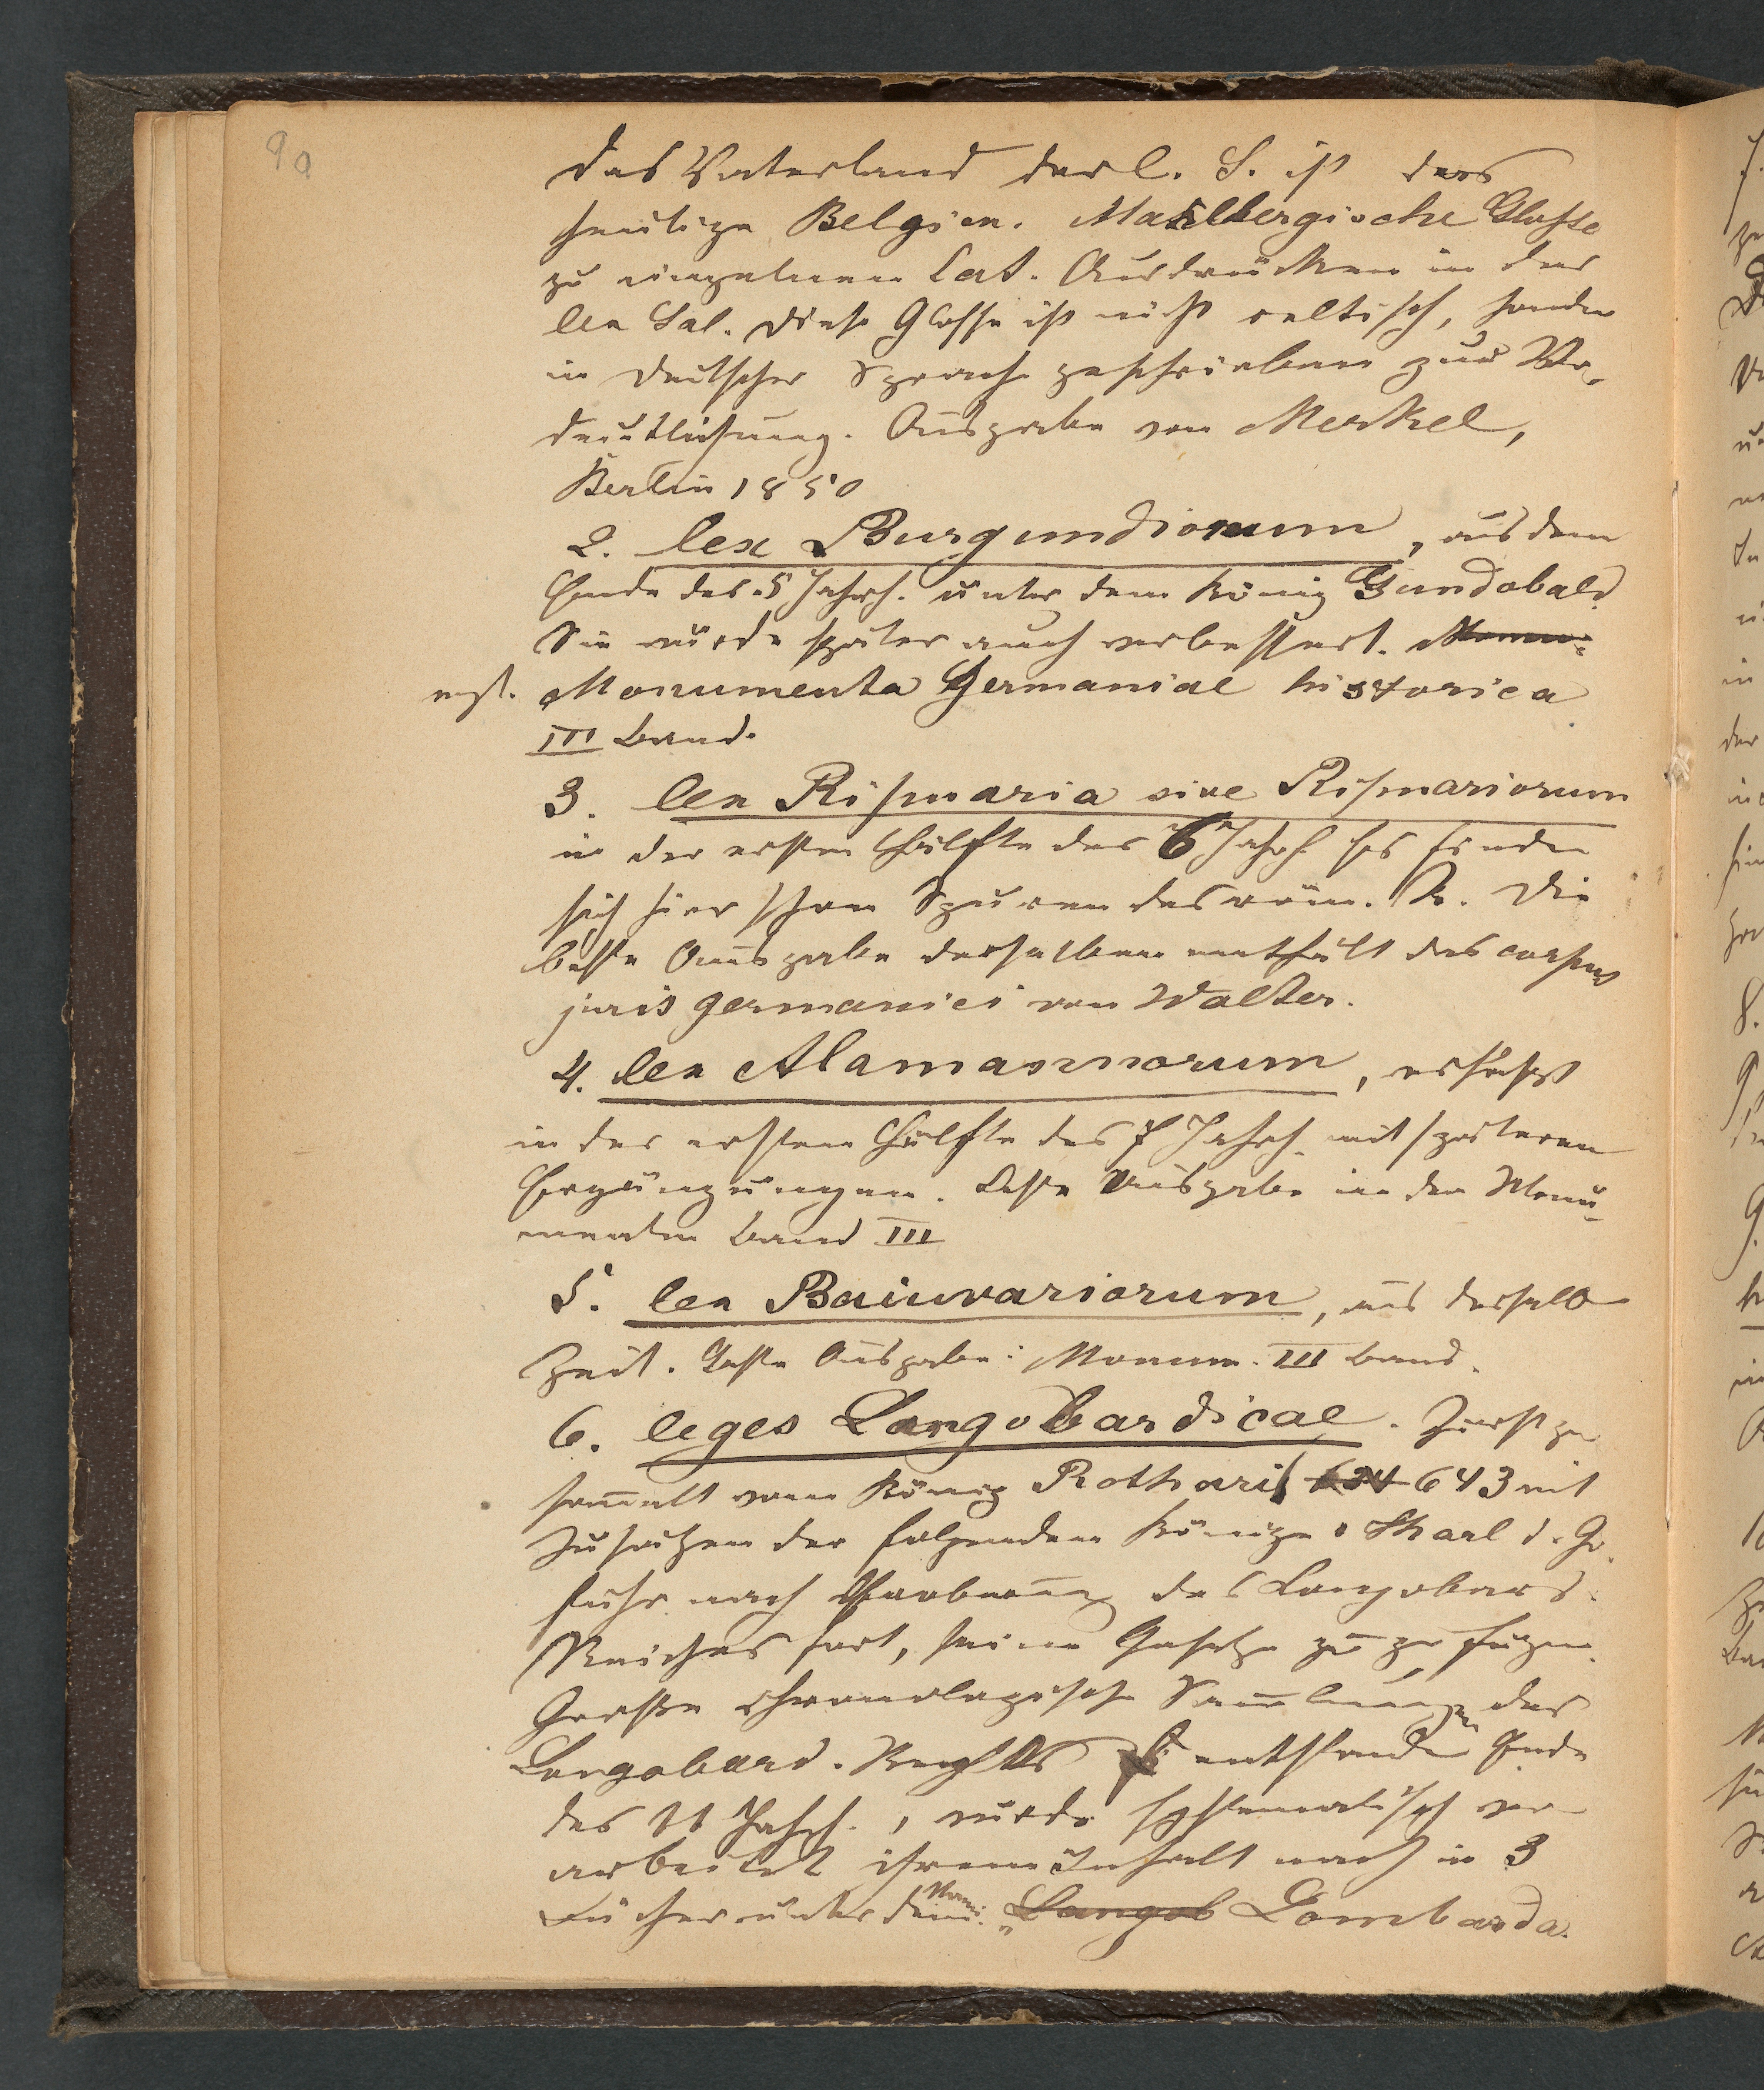 90
Das Vaterland der l. S. ist das
heutige Belgien. Mahlbergische Glosse
zu einzelnen Lat. Ausdrücken in der
lex Sal. Diese Glosse ist nicht celtisch, sondern
in deutscher Sprache geschrieben zur Ver-
deutlichung. Ausgabe von Merkel,
Berlin 1850
2. lex Burgundionum, aus dem
Ende des 5 Jahrh. unter dem König Gundobald.
Sie wurde später auch verbessert.
vgl. Monumenta Germaniae historica
III Band.
3. lex Ripuaria sive Ripuariorum
in der ersten Hälfte des 6 Jahrh. Es finden
sich hier schon Spuren des röm. R. Die
beste Ausgabe derselben enthält das corpus
juris germanici von Walter.
4. lex Alamannorum, verfaßt
in der ersten Hälfte des 7 Jahrh. mit späteren
Ergänzungen. Beste Ausgabe in den Monu-
menten Band III
5. lex Baiuvariorum, aus derselben
Zeit. Beste Ausgabe: Monum. III Band.
6. leges Langobardicae. Zuerst ge
sammelt vom König Rothari 643 mit
Zusätzen der folgenden Könige. Karl d. Gr.
fuhr nach Eroberung des Langobard.
Reiches fort, seine Gesetze zuzufügen.
Große chronologische Sammlungen des
Langobard. Rechts entstanden Ende
des 11 Jahrh., wurde systematisch ver
arbeitet ihrem Inhalt nach in 3
Bücher unter dem Namen „Langob Lombarda.